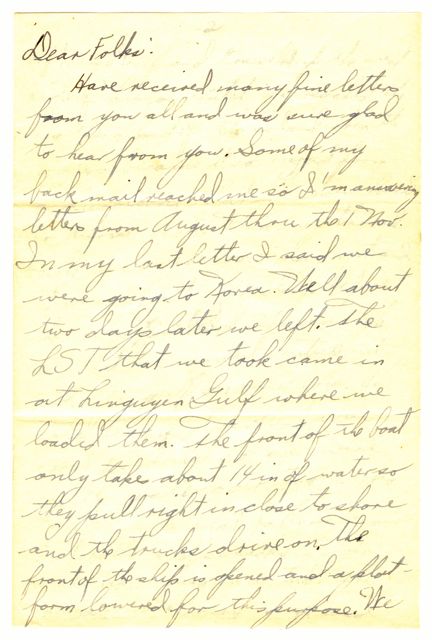 Dear Folks:
Have received many fine letters
from you all and was sure glad
to hear from you. Some of my
back mail reached me so I'm answering
letters from August thru the 1 Nov.
In my last letter I said we
were going to Korea. Well about
two days later we left. The
LST that we took came in
at Linguyen Gulf where we
loaded them. The front of the boat
only takes about 14 in of water so
they pull right in close to shore
and the trucks drive on. The
front of the ship is opened and a plat-
form lowered for this purpose. We